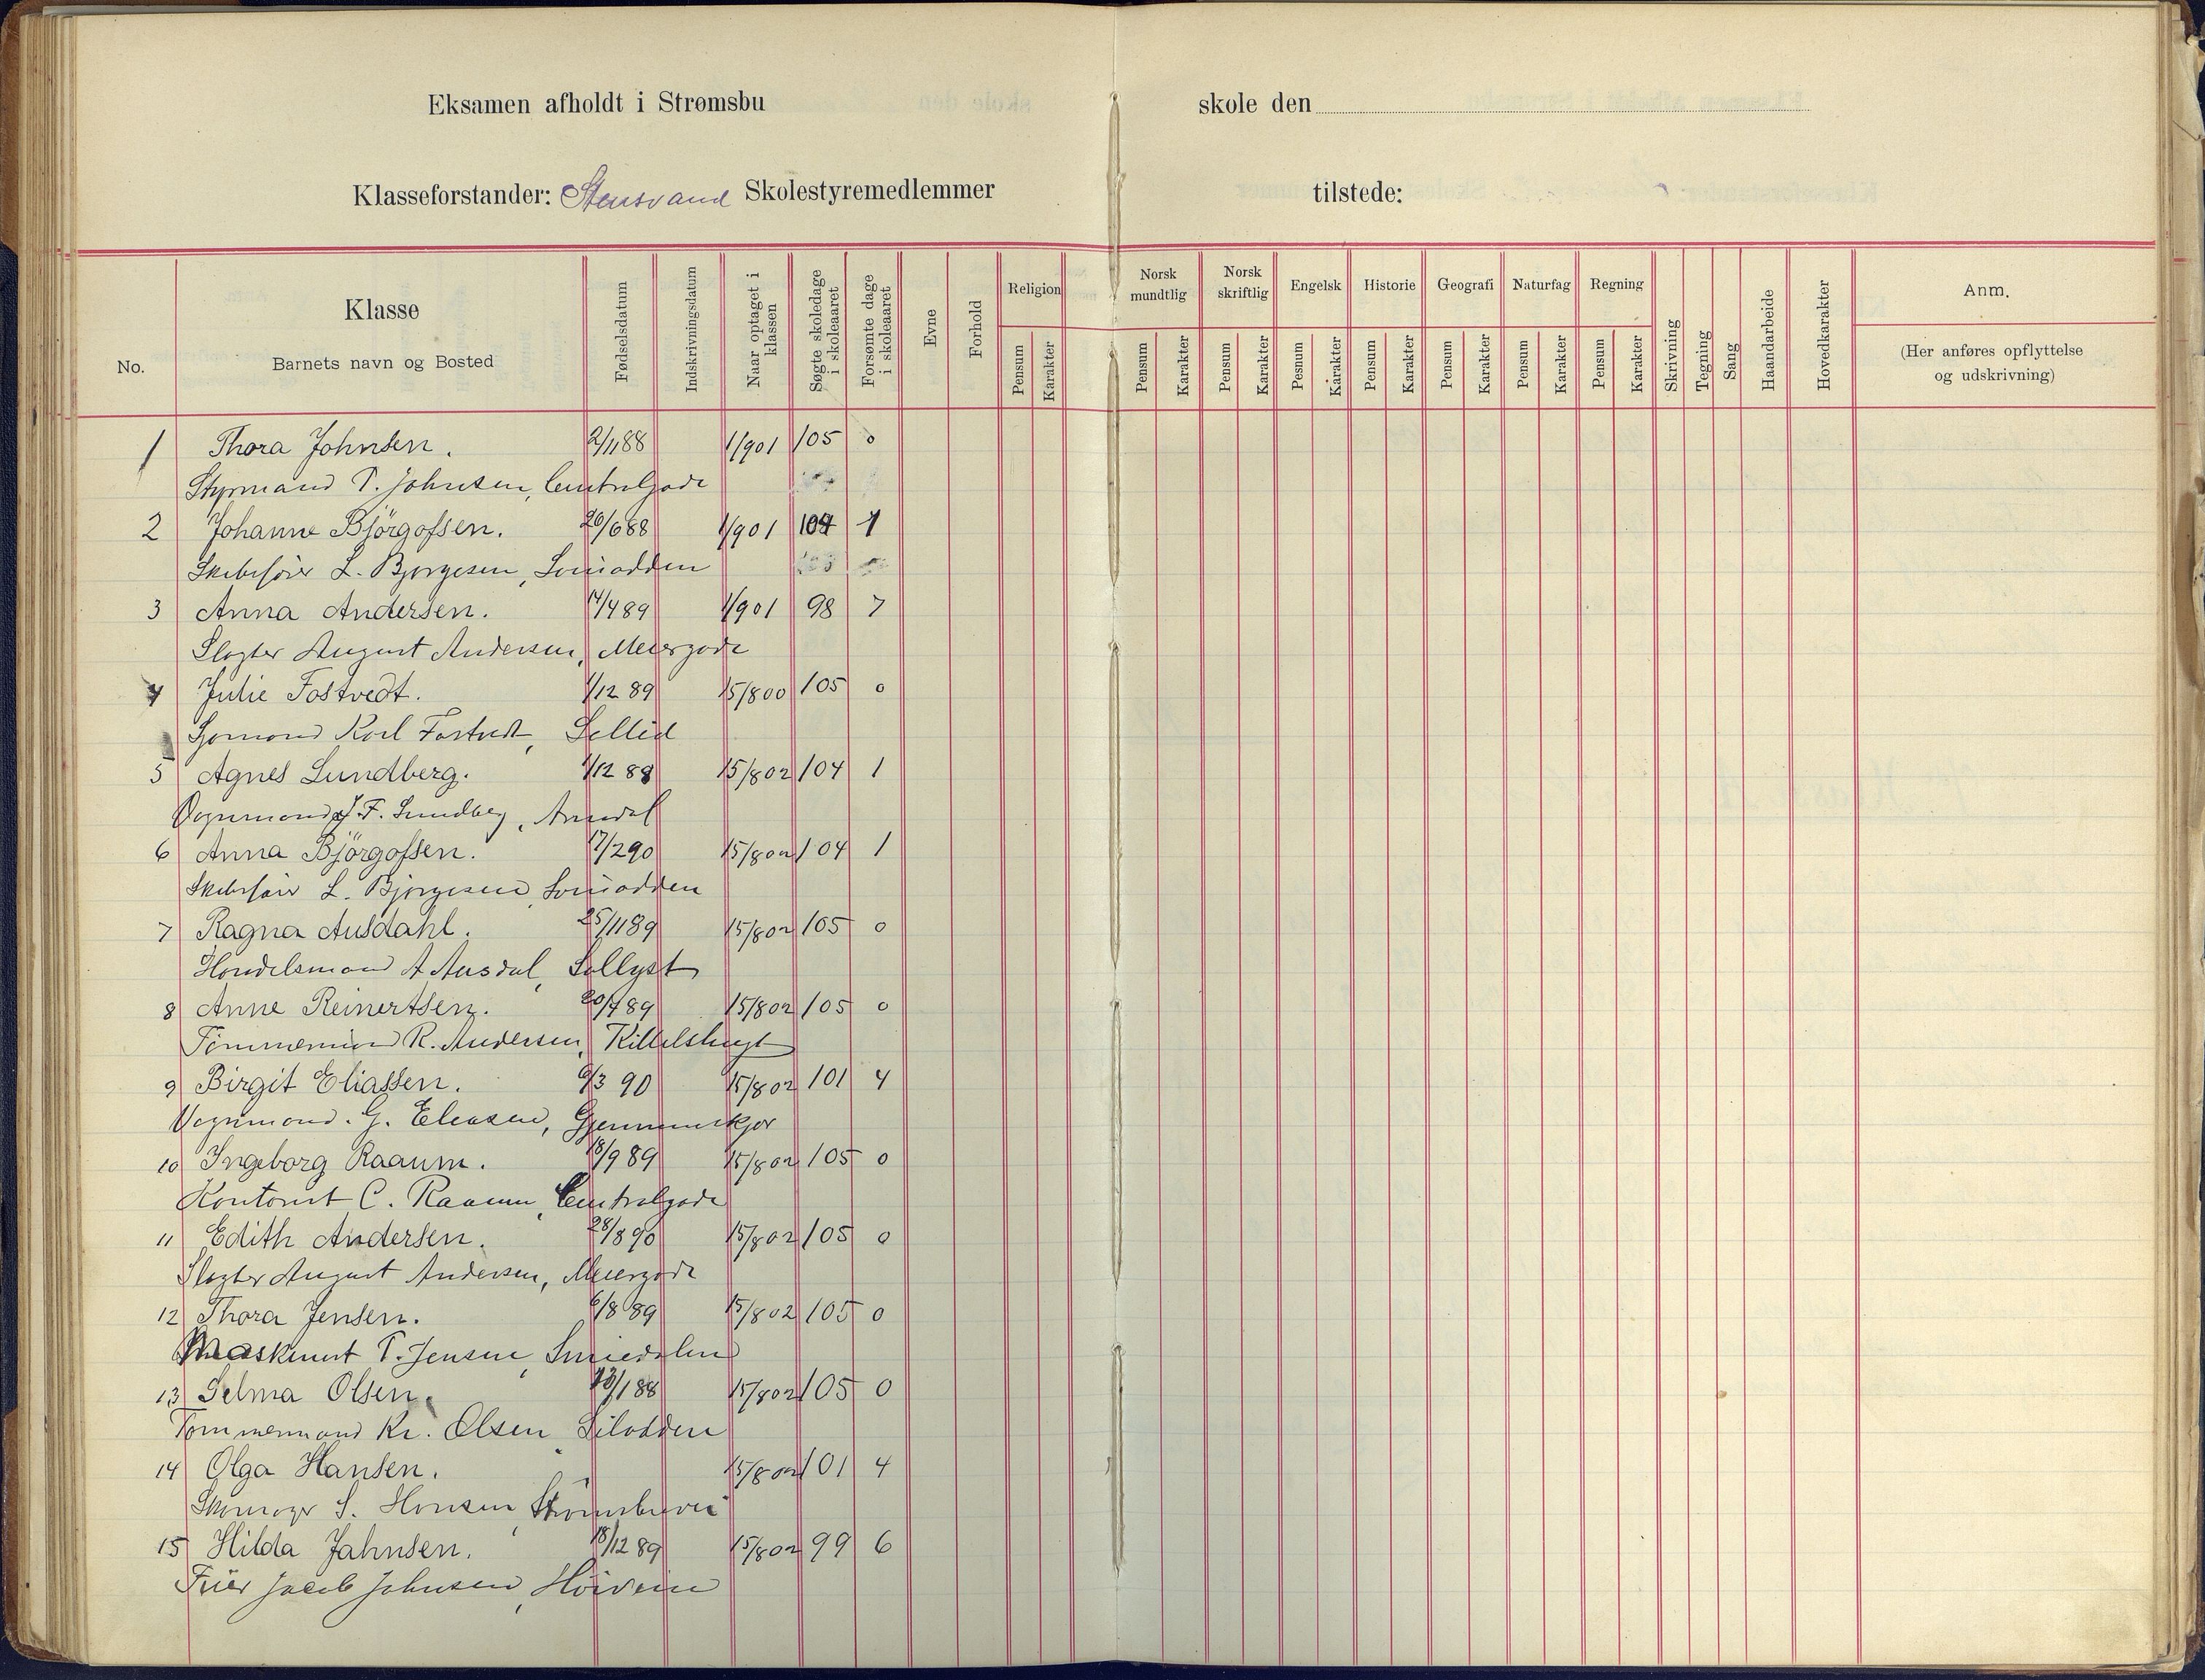 Eksamen afholdt i Strømsbu skole den
Klasseforstander: Stensvand Skolestyremedlemmer tilstede:
No. Klasse Barnets navn og Bosted Fødselsdatum Indskrivningsdatum Naar optaget i klassen Søgte skoledage i skoleaaret Forsømte dage i skoleaaret Evne Forhold Religion Norsk mundtlig Norsk skriftlig Engelsk Historie Geografi Naturfag Regning Skrivning Tegning Sang Haandarbeide Hovedkarakter Anm.
(Her anføres opflyttelse og udskrivning)
Pensum Karakter Pensum Karakter Pensum Karakter Pesnum Karakter Pensum Karakter Pensum Karakter Pensum Karakter Pensum Karakter
1 Thora Johnsen. 2/11 88 1/901 105 0
Styrmand T. Johnsen, Centralgade
2 Johanne Björgofsen. 26/6 88 1/901 104 1
L. Bjorgesen,
3 Anna Andersen. 14/4 89 1/901 98 7
Slagter August Andersen, Meiergade
4 Julie Fostvedt. 1/12 89 15/8 00 105 0
Sjomand Karl Fostvedt, Sollid
5 Agnes Lundberg. 1/12 88 15/8 02 104 1
Vognmand J. F. Lundberg, Arendal
6 Anna Björgofsen. 17/2 90 15/8 02 104 1
L. Bjorgesen,
7 Ragna Ausdahl. 25/11 89 15/8 02 105 0
Handelsmand A Ausdal, Sollyst
8 Anne Reinertsen. 20/7 89 15/8 02 105 0
Tømmermand R. Andersen, Kittelsbugt
9 Birgit Eliassen. 6/3 90 15/8 02 101 4
Vognmand. G. Eleasen,
10 Ingeborg Raaum. 18/9 89 15/8 02 105 0
Kontorist C. Raaum, Centralgade
11 Edith Andersen. 28/8 90 15/8 02 105 0
Slagter August Andersen, Meiergade
12 Thora Jensen. 6/8 89 15/8 02 105 0
Maskinist T. Jensen, Smiedalen
13 Selma Olsen. 15/8 02 105 0
Tømmermand Kr. Olsen, Silodden
14 Olga Hansen. 15/8 02 101 4
Skomager S. Hansen, Strømsbuvei
15 Hilda Jahnsen. 18/12 89 15/8 02 99 6
Jacob Johnsen, Høiveien